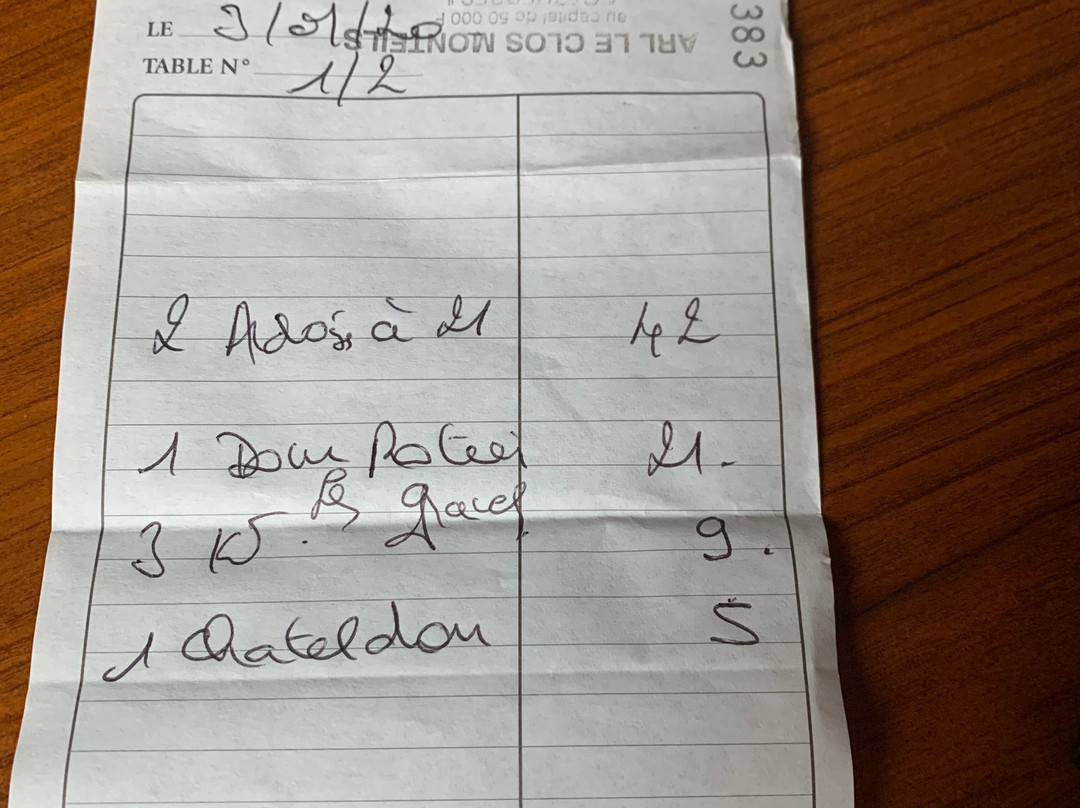 383
au capital de 50 000 F
ARL LE CLOS MONTEILS
LE 3/01/20
TABLE N° 1/2
2 Ados à 21 42
1 Dom 21.-
3 9.
1 Chateldon 5